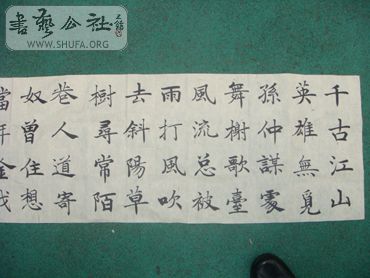 千古江山
英雄無覓
孫仲謀處
舞榭歌臺
風流总被
雨打風吹
去斜陽草
樹尋常陌
巷人道寄
奴曾住想
當年金戈
書藝公社
WWW.SHUFA.ORG